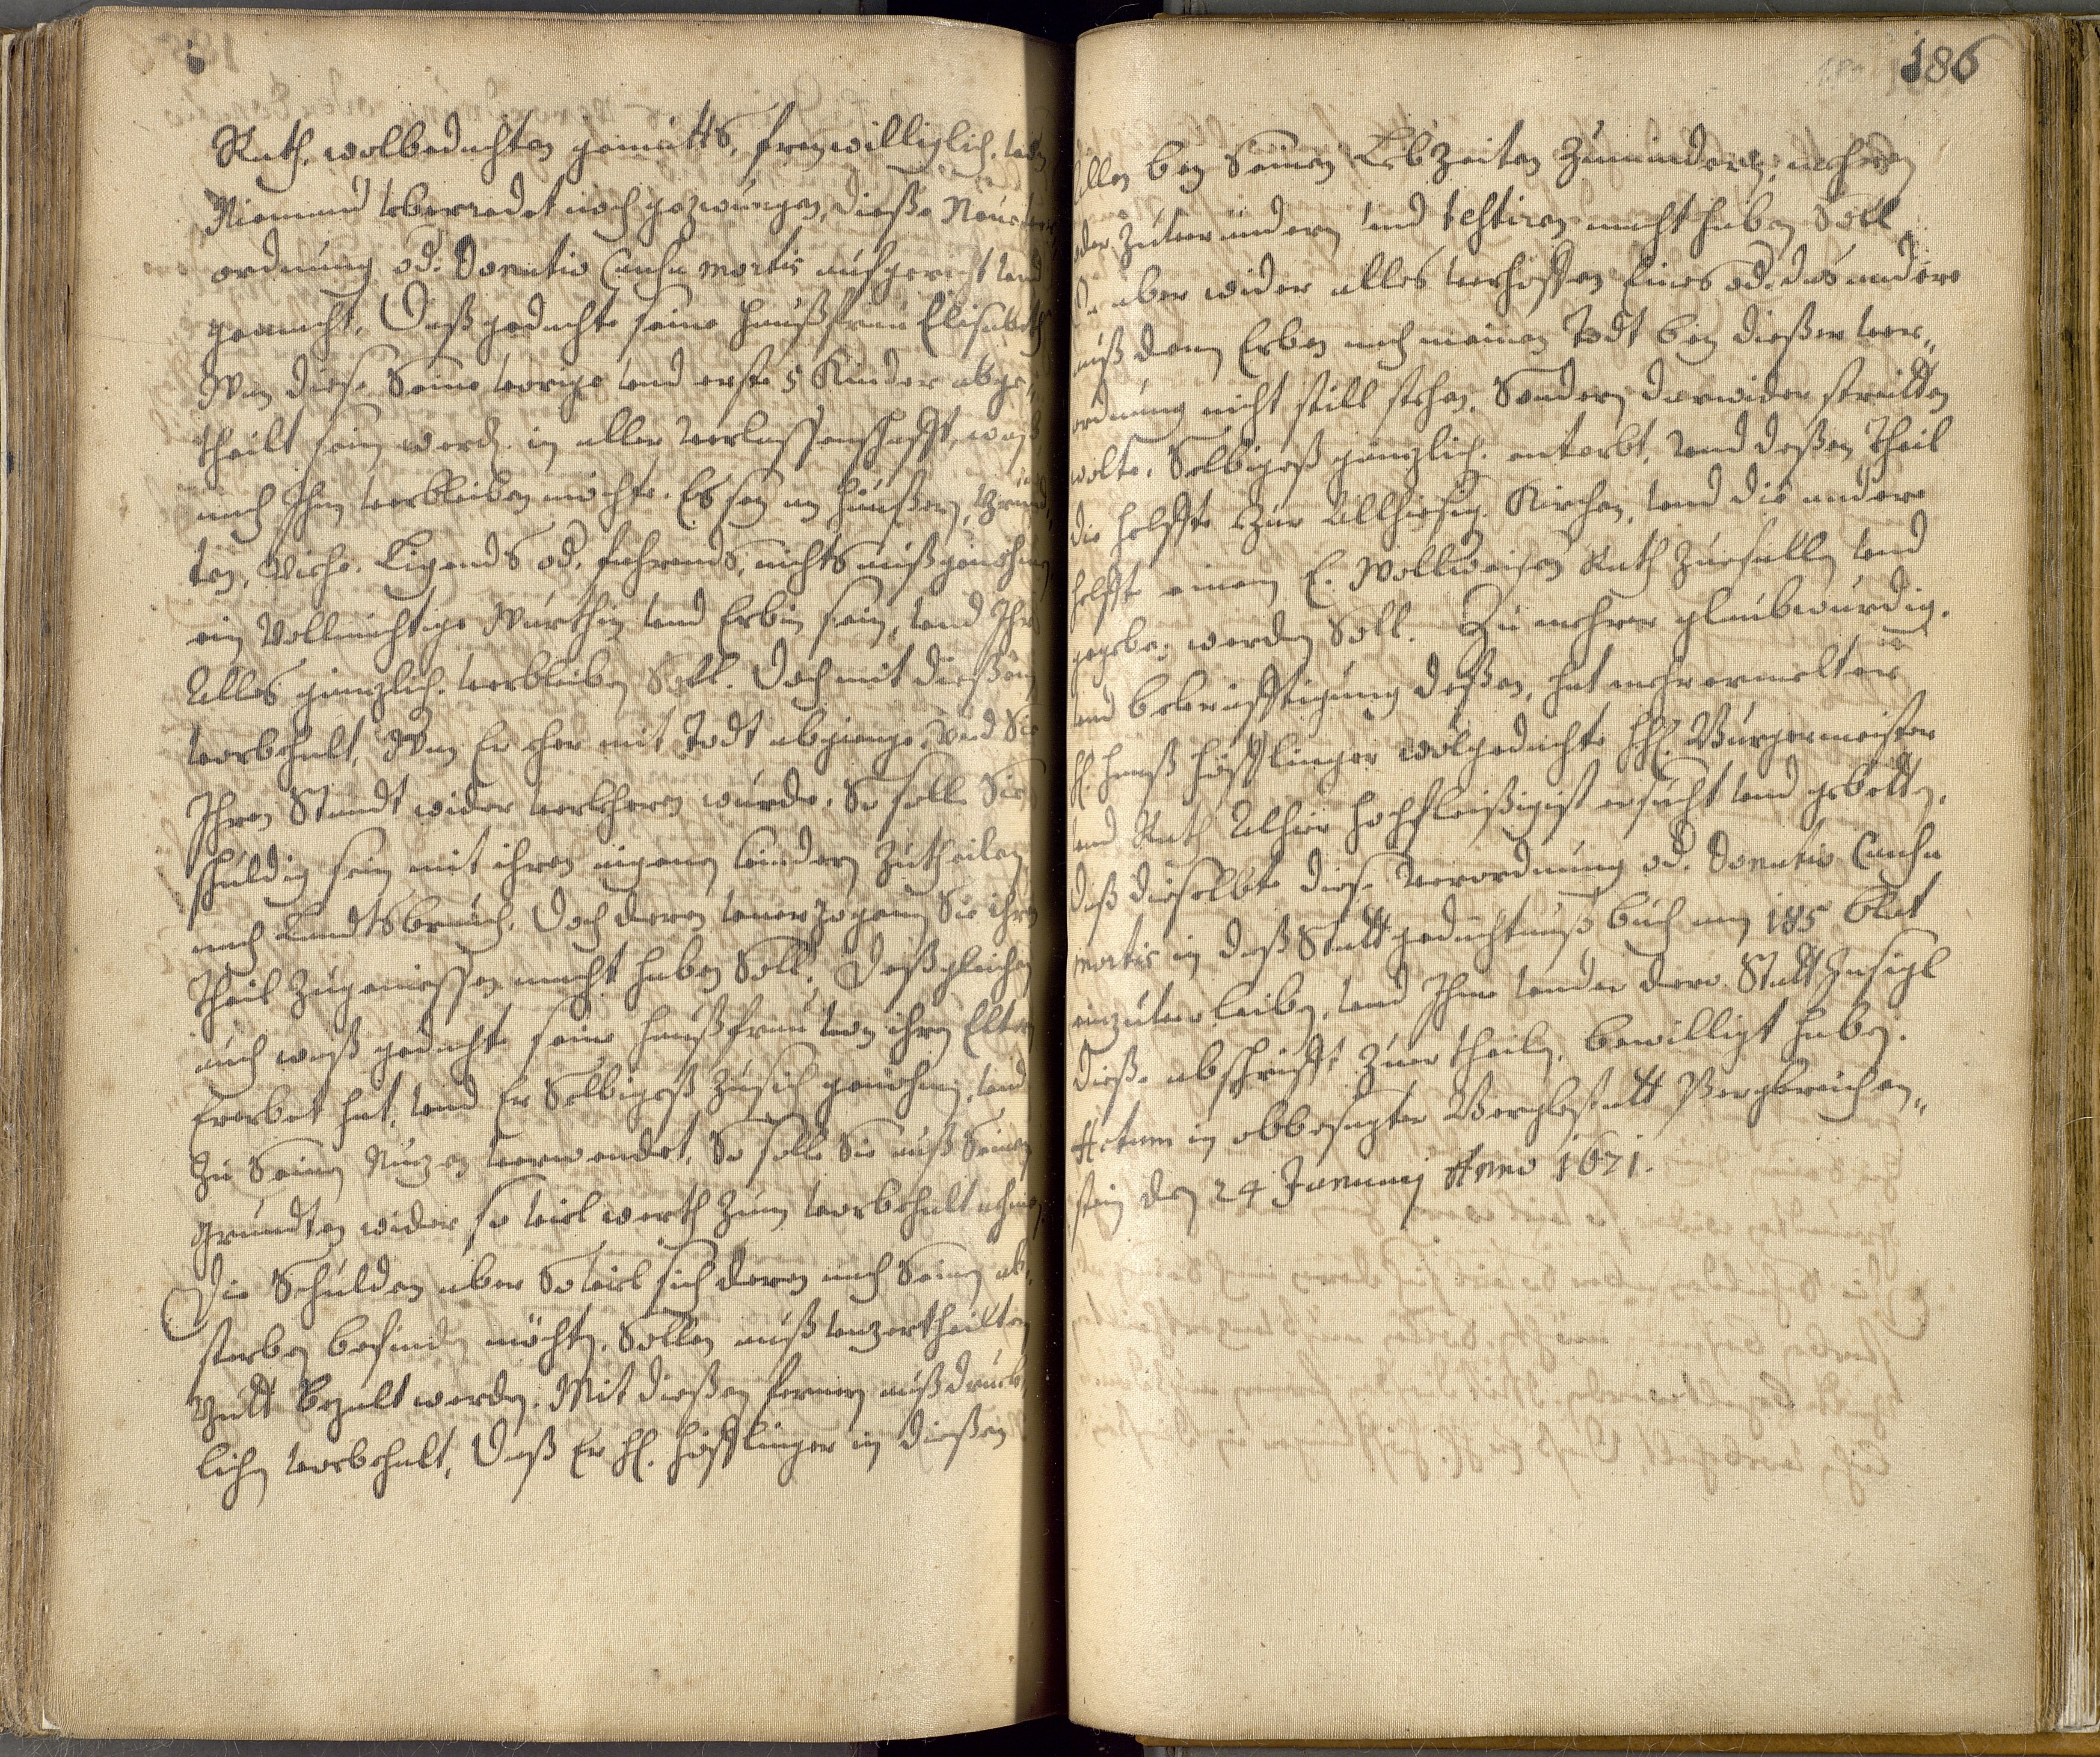 186
Rath, wolbedachten gemütts, freywilliglich, von
Niemand vberredet noch gezwungen, dieße Neue ver
ordnung od. Donatio Causa mortis aufgericht vnd
gemacht. Daß gedachte seine haußfrau Elisabeth
Wan diese Seine vorige vnd erste 5 Kinder abge„
theilt sein werd. in aller verlassenschafft, waß
nach Ihm verbleiben möchte. Es sey an häußern, grund„
ten, Viehe. Ligends od. fahrends, nichts außgenohmen
ein Vollmächtige Würthin vnd Erbin sein, vnd Ihr
Alles gänzlich verbleiben Soll. Doch mit dießem
vorbehalt, Wan Er eher mit Todt abgienge, vnd Sie
Ihren Standt wider verkheren wurde. So solle Sie
schuldig sein mit ihren aigenen kindern zutheilen
nach Landtsbrauch. Doch deren vnerzogenen Sie ihren
Theil zugeniessen macht haben Soll. Deßgleichen
auch waß gedachte seine haußfrau von ihren Eltern
Ererbet hat, vnd Er Selbigeß zu sich genohmen, vnd
zu Seinen Nuzen verwendet, So solle Sie auß Seinen
gründten wider so viel werth zum vorbehalt nehmen.
Die Schulden aber So viel sich deren nach Seinen ab„
sterben befinden möchten, Sollen auß vnzertheilten
Gutt bezalt werden. Mit dießen fernern außdruck„
lichen vorbehalt, Daß Er H. Höfflinger in dießen
allen bey Seinen LebZeiten zumindern, mehren
oder zuverändern vnd testiren macht haben Soll
Da aber wider alles verhoffen Eines od. das andere
auß denen Erben nach meinen Todt bey dießer ver„
ordnung nicht still stehen, Sondern darwider streitten
wolte. Selbigeß gänzlich enterbt, vnd deßen Theil
die helffte zur Allhiesig. Kirchen, vnd die andere
helffte einem E. Wollweisen Rath zuefallen vnd
gegeben werden Soll. Zu mehrer glaubwürdig.
vnd bekräfftigung deßen, hat mehrermelter
H. Hanß Höfflinger wolgedachte HH. Burgermeister
vnd Rath Alhier hochfleißigist ersucht vnd gebetten,
daß dieselbte diese Verordnung od. Donatio Causa
mortis in daß Statt gedächtnuß buch am 185 blat
einzuverleiben, vnd Ihme vnder dero Statt Insigl
dieße abschrifft zuertheilen, bewilligt haben.
Actum in obbesagter Bergkstatt Bergkreichen„
stein den 24 Januarij Anno 1671.